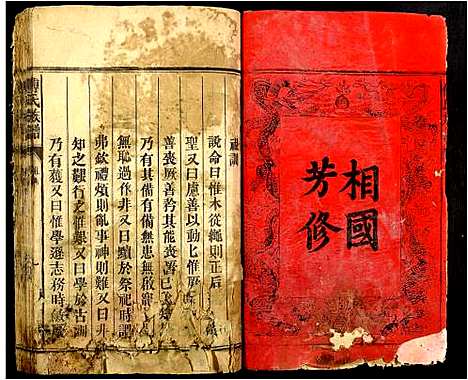 相國
芳修
祖訓
說命曰惟木從繩則正后
聖又曰慮善以動動惟厥
善喪厥善矜其能喪厥
乃有其備有備無患無啟寵
無恥過作非又曰黷於祭祀時謂
弗欽禮煩則亂事神則難又曰非
知之艱行之惟艱又曰學於古訓
乃有獲又曰惟學遜志務時敏
氏族譜